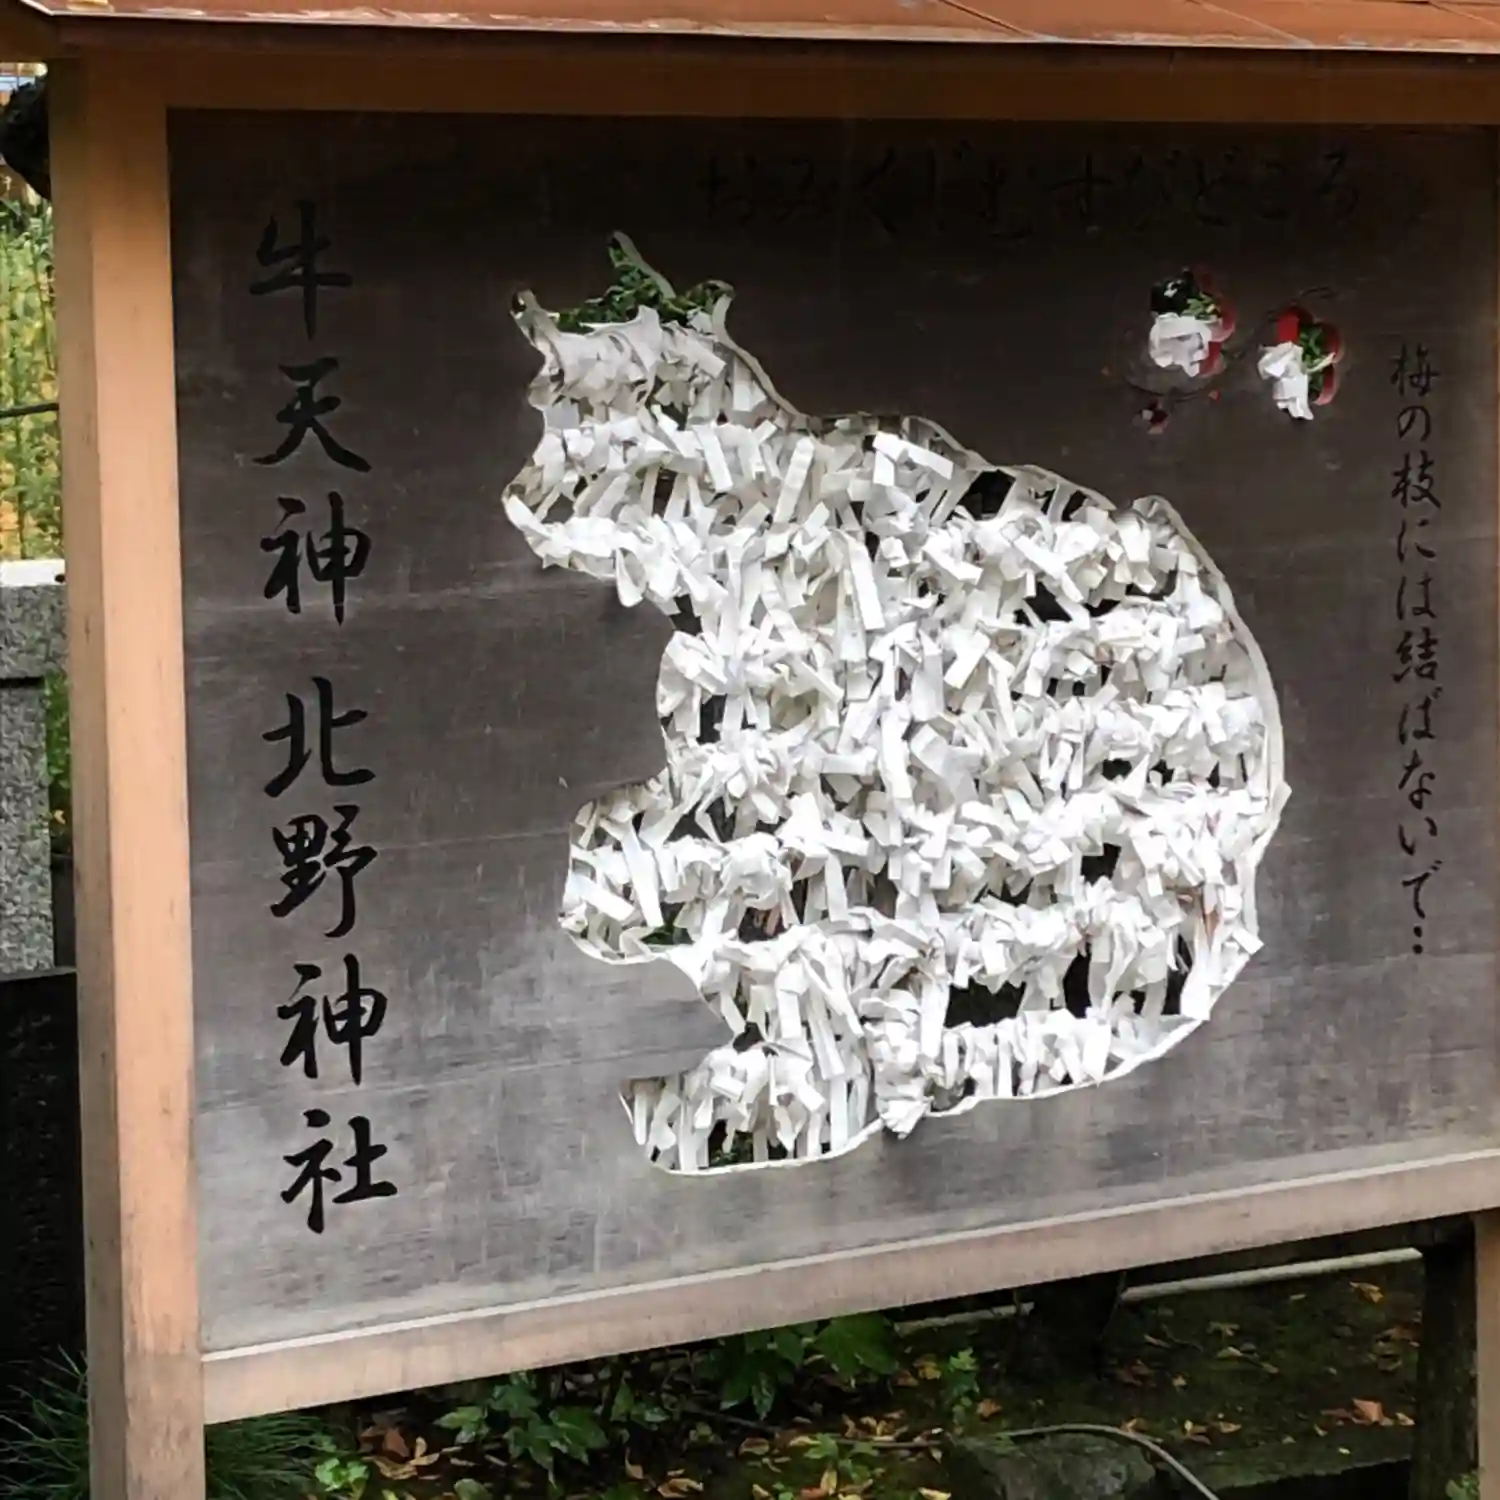 おみくじむすびどころ
梅の枝には結ばないで‥
牛天神北野神社